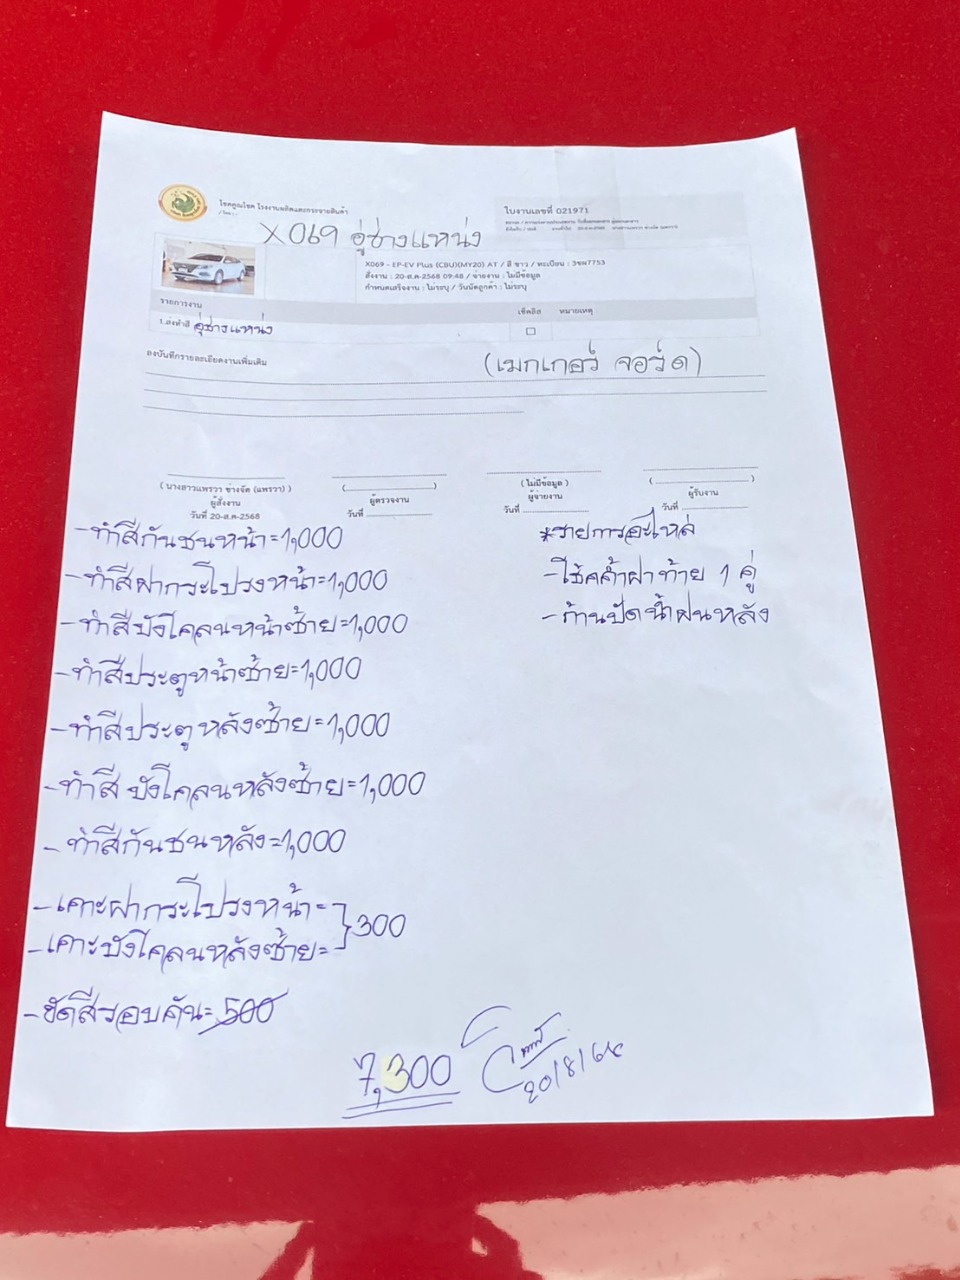 โชคคูณโชค โรงงานผลิตและกระจายสินค้า
ใบงานเลขที่ 021971
X069 อู่ช่างแหน่ง
X069 - EP-EV Plus (CBU)(MY20) AT / สี ขาว / ทะเบียน : 3ขผ7753
สั่งงาน : 20-ส.ค-2568 09:48 / จ่ายงาน : ไม่มีข้อมูล
กำหนดเสร็จงาน : ไม่ระบุ / วันนัดลูกค้า : ไม่ระบุ
รายการงาน เช็คลิส หมายเหตุ
1.ส่งทำสี อู่ช่างแหน่ง
ลงบันทึกรายละเอียดงานเพิ่มเติม
(เมกเกอร์ จอร์ด)
( นางสาวแพรวา ช่างจัด (แพรวา) ) (ไม่มีข้อมูล)
ผู้สั่งงาน ผู้ตรวจงาน ผู้จ่ายงาน ผู้รับงาน
วันที่ 20-ส.ค-2568 วันที่ วันที่ วันที่
-ทำสีกันชนหน้า=1,000
-ทำสีฝากระโปรงหน้า=1,000
-ทำสีบังโคลนหน้าซ้าย=1,000
-ทำสีประตูหน้าซ้าย=1,000
-ทำสีประตูหลังซ้าย=1,000
-ทำสีบังโคลนหลังซ้าย=1,000
-ทำสีกันชนหลัง=1,000
-เคาะฝากระโปรงหน้า=
-เคาะบังโคลนหลังซ้าย= }300
-ขัดสีรอบคัน=500
*รายการอะไหล่
-โช้คค้ำฝาท้าย 1 คู่
-ก้านปัดน้ำฝนหลัง
7,300
20/8/68